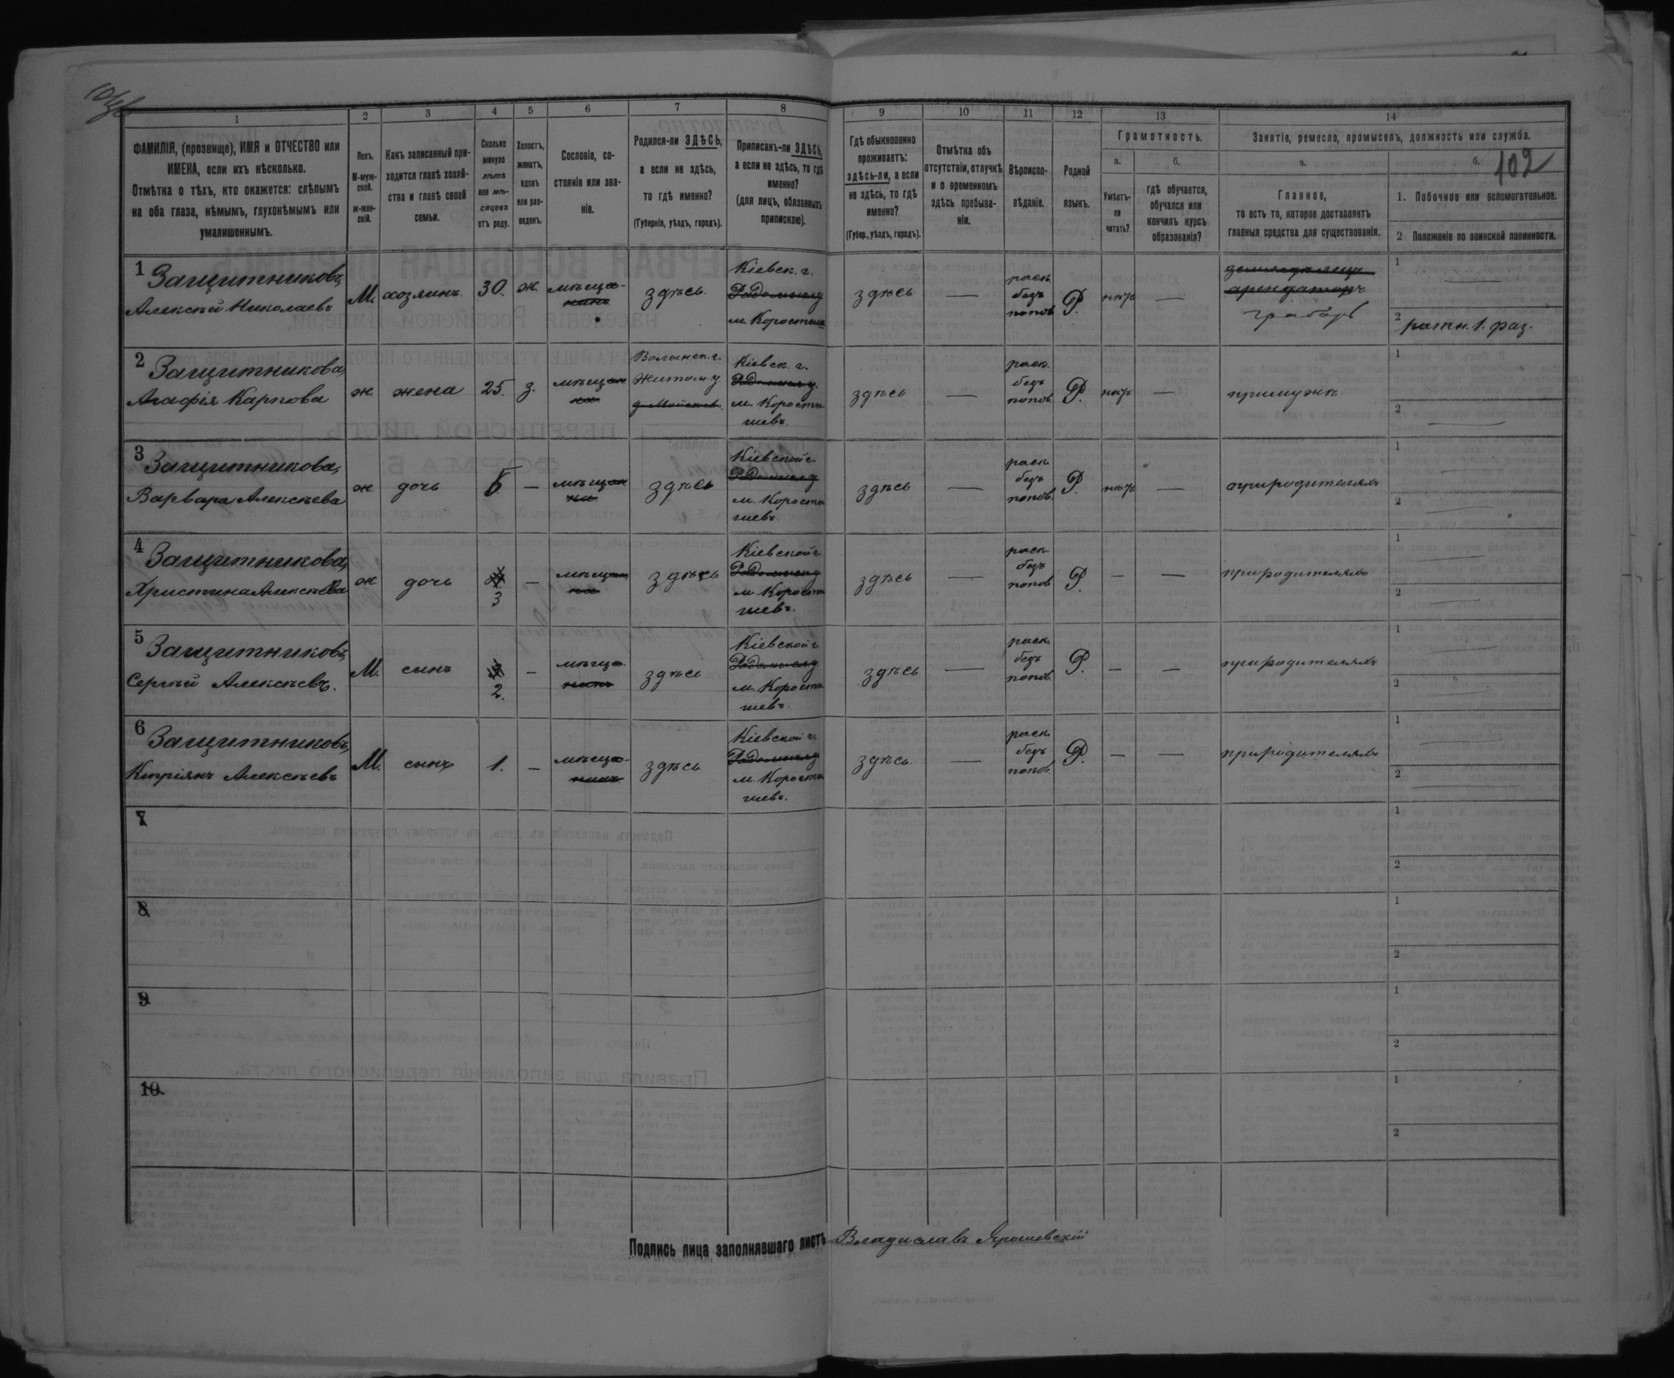 102
1 2 3 4 5 6 7 8 9 10 11 12 13 14
ФАМИЛІЯ, (прозвище), ИМЯ и ОТЧЕСТВО или
ИМЕНА, если ихъ нѣсколько.
Отмѣтка о тѣхъ, кто окажется: слѣпымъ
на оба глаза, нѣмымъ, глухонѣмымъ или
умалишеннымъ.
Полъ.
М-муж-
ской.
ж-жен-
скій.
Какъ записанный при-
ходится главѣ хозяй-
ства и главѣ своей
семьи.
Сколько
минуло
лѣтъ
или мѣ-
сяцевъ
отъ роду.
Холостъ,
женатъ,
вдовъ
или раз-
веденъ.
Сословіе, со-
стояніе или зва-
ніе.
Родился-ли ЗДѢСЬ,
а если не здѣсь,
то гдѣ именно?
(Губернія, уѣздъ, городъ).
Приписанъ-ли ЗДѢСЬ,
а если не здѣсь, то гдѣ
именно?
(для лицъ, обязанныхъ
припискою).
Гдѣ обыкновенно
проживаетъ:
здѣсь-ли, а если
не здѣсь, то гдѣ
именно?
(Губер., уѣздъ, городъ).
Отмѣтка объ
отсутствіи, отлучкѣ
и о временномъ
здѣсь пребыва-
ніи.
Вѣроиспо-
вѣданіе.
Родной
языкъ.
Грамотность.
а.
Умѣетъ-
ли
читать?
б.
гдѣ обучается,
обучался или
кончилъ курсъ
образованія?
Занятіе, ремесло, промыселъ, должность или служба.
а.
Главное,
то есть то, которое доставляетъ
главныя средства для существованія.
б.
1. Побочное или вспомогательное.
2 Положеніе по воинской повинности.
1 Защитниковъ
Алексѣй Николаевъ
М. хозяинъ 30. ж. мѣща-
нинъ
здѣсь
Кіевск. г.
Радомысл у
м. Коростыш
здѣсь —
раск.
безъ
попов.
Р. нѣтъ —
земледѣлецъ
арендаторъ
грабарь
1 —
2 ратн. 1. раз.
2 Защитникова,
Агафія Карпова
ж. жена 25. з. мѣщан
ка
Волынск. г.
Житом. у
Кіевск. г.
Радомысл у.
м. Корости
шевъ.
здѣсь —
раск.
безъ
попов.
Р. нѣтъ — примужѣ
1
2 —
3 Защитникова,
Варвара Алексѣева
ж дочь 5 — мѣщан
ка
здѣсь
Кіевской г.
Радомысл у
м. Корости
шевъ.
здѣсь —
раск.
безъ
попов.
Р. нѣтъ — природителяхъ
1
2
4 Защитникова,
Христина Алексѣева
ж дочь 3 — мѣщан
ка
здѣсь
Кіевской г
Радомысл у
м. Корости
шевъ.
здѣсь —
раск.
безъ
попов
Р. — — природителяхъ
1
2
5 Защитниковъ,
Сергѣй Алексѣевъ.
М. сынъ 2. — мѣща-
нинъ
здѣсь
Кіевской г
Радомысл у
м. Корости
шевъ.
здѣсь —
раск.
безъ
попов.
Р. — — природителяхъ
1
2
6 Защитниковъ,
Кипріянъ Алексѣевъ
М. сынъ 1. — мѣща-
нинъ
здѣсь
Кіевской г.
Радомысл у
м. Корости
шевъ.
здѣсь —
раск.
безъ
попов.
Р. — — природителяхъ
1
2
7
1
2
8
1
2
9
1
2
10.
1
2
Подпись лица заполнявшаго листъ Владиславъ Ярошевскій